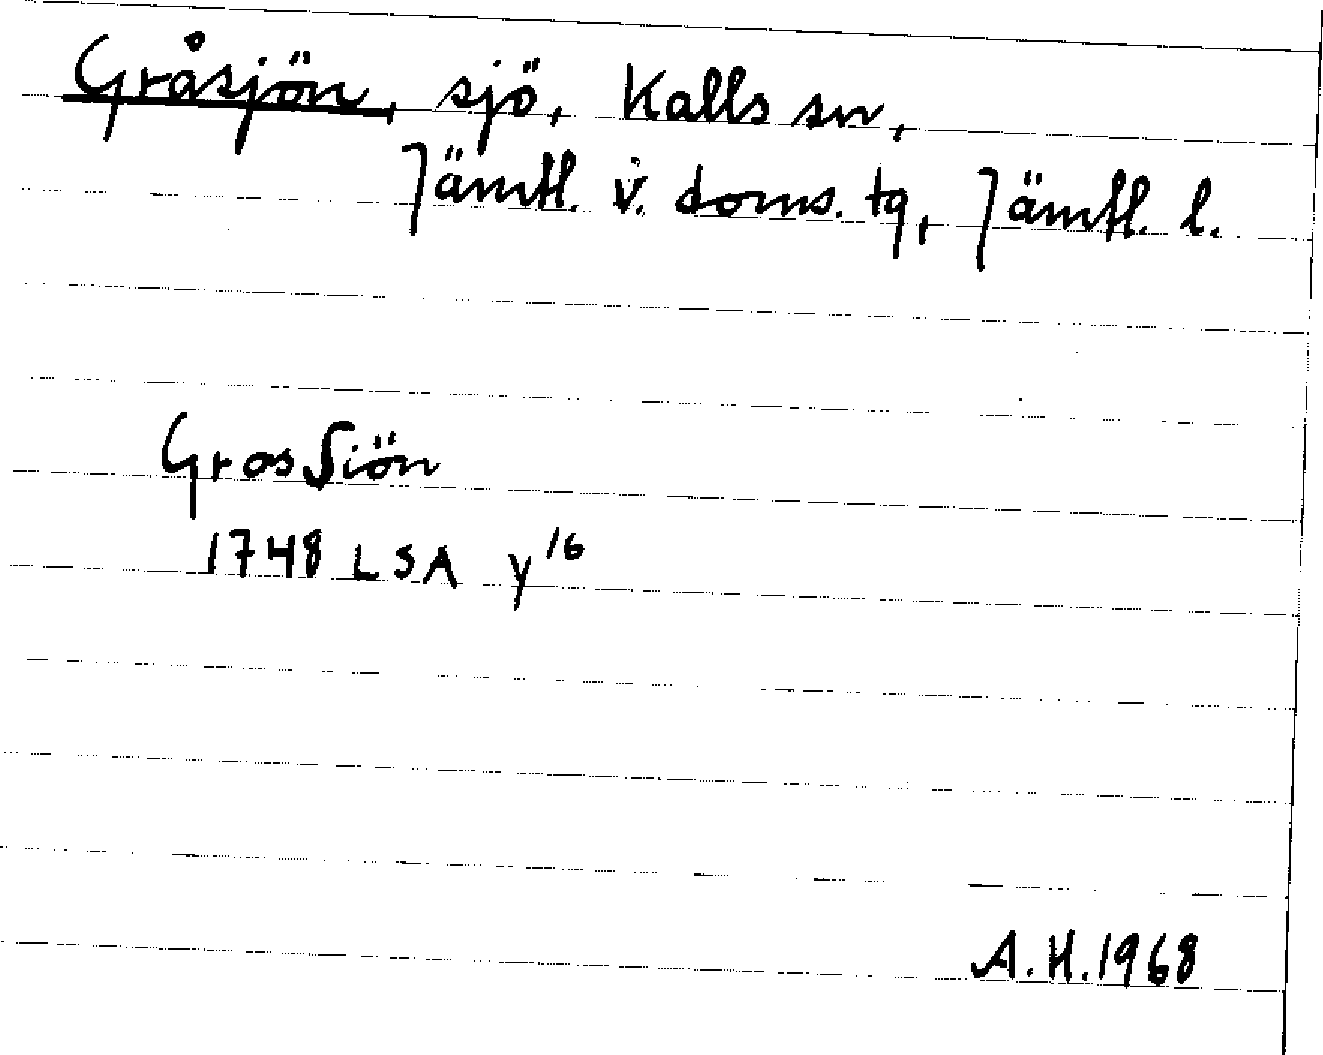 Gråsjön, sjö, Kalls sn,
Jämtl. v. doms. tg, Jämtl. l.
GrosSiön
1748 LSA y16
A.H. 1968